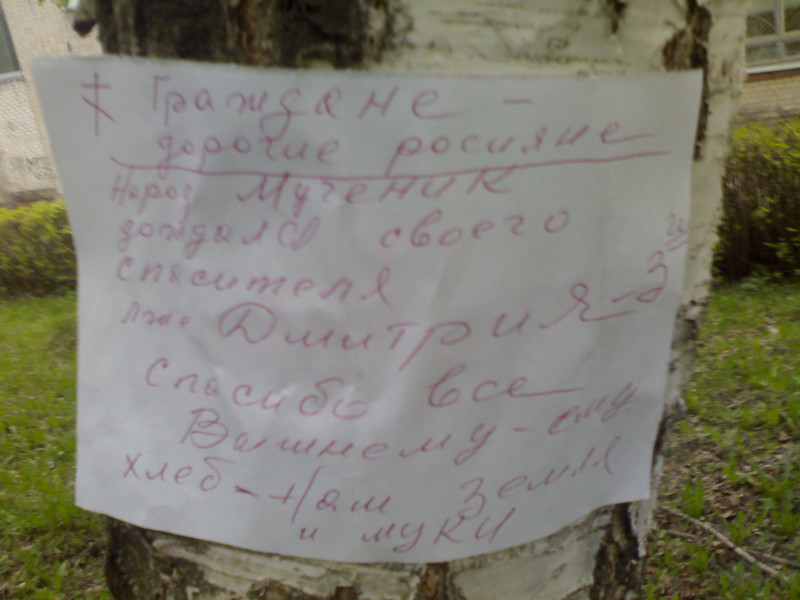 Граждане -
дорогие росияне
Народ Мученик
дождался своего
спасителя
лже Дмитрия - 3
спасибо все
Вышнему - ему
хлеб - Нам земля
и муки